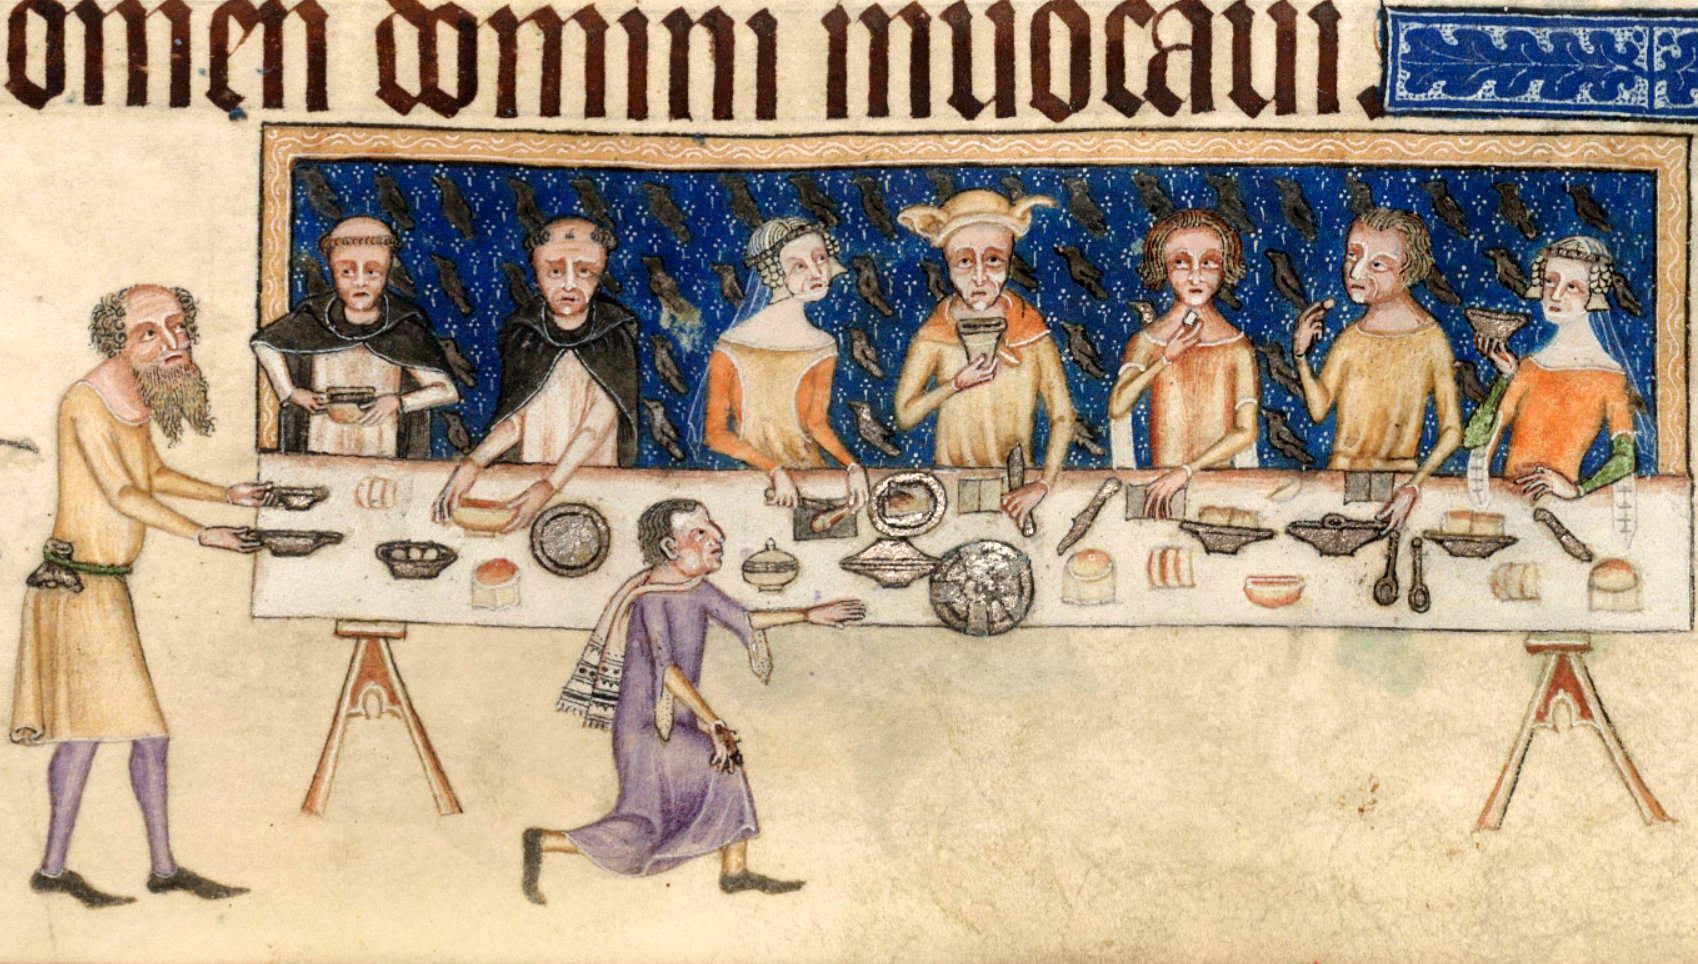 omen domini inuocaui.